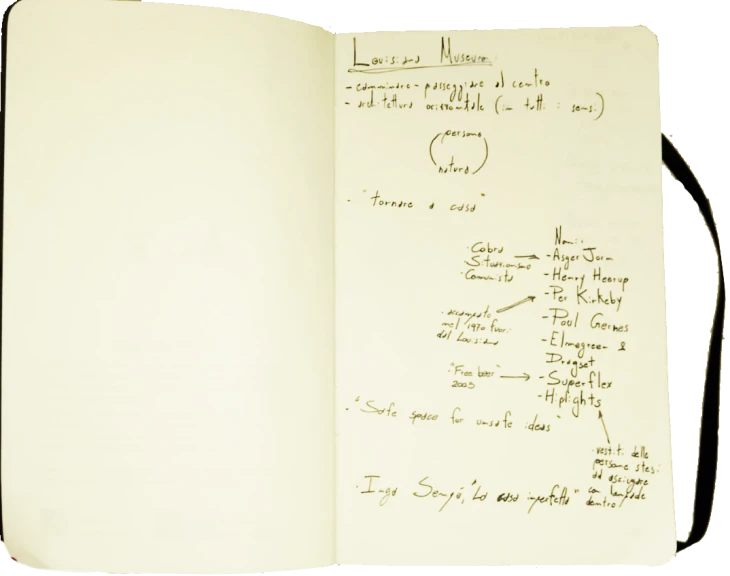 Louisiana Museum
- camminare - passeggiare al centro
- architettura orizzontale (in tutti i sensi)
persone
natura
- "tornare a casa"
Nomi:
· Cobra
Situazionismo
· Comunista
- Asger Jorn
- Henry Heerup
- Per Kirkeby
· accampato
nel 1970 fuori
dal Louisiana
- Poul Gernes
- Elmagreen &
Dragset
"Free beer"
2005
- Superflex
- Hiplights
· "Safe space for unsafe ideas"
· vestiti delle
persone stesi
ad asciugare
con lampade
dentro
· Inga Sempé, "La casa imperfetta"